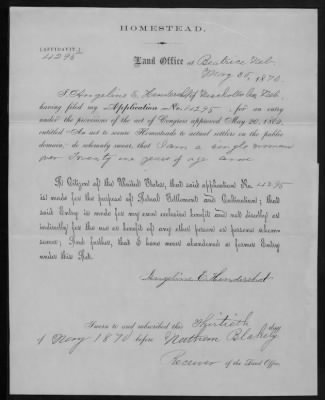 HOMESTEAD.
[AFFIDAVIT.]
4295
Land Office at Beatrice Neb.
May 30, 1870.
I, Angeline E. Hendershot of Neb.
having filed my Application No. 4295, for an entry
under the provisions of the act of Congress approved May 20, 1862,
entitled "An act to secure Homesteads to actual settlers on the public
domain," do solemnly swear, that I am a single woman
over Twenty one years of age and
A Citizen of the United States, that said application No. 4295
is made for the purpose of Actual Settlement and Cultivation; that
said Entry is made for my own exclusive benefit and not directly or
indirectly for the use or benefit of any other person or persons whom-
soever; And further, that I have never abandoned a former Entry
under this Act.
Angeline E. Hendershot
Sworn to and subscribed this Thirtieth day
of May 1870 before Nathan Blakely
Receiver of the Land Office.